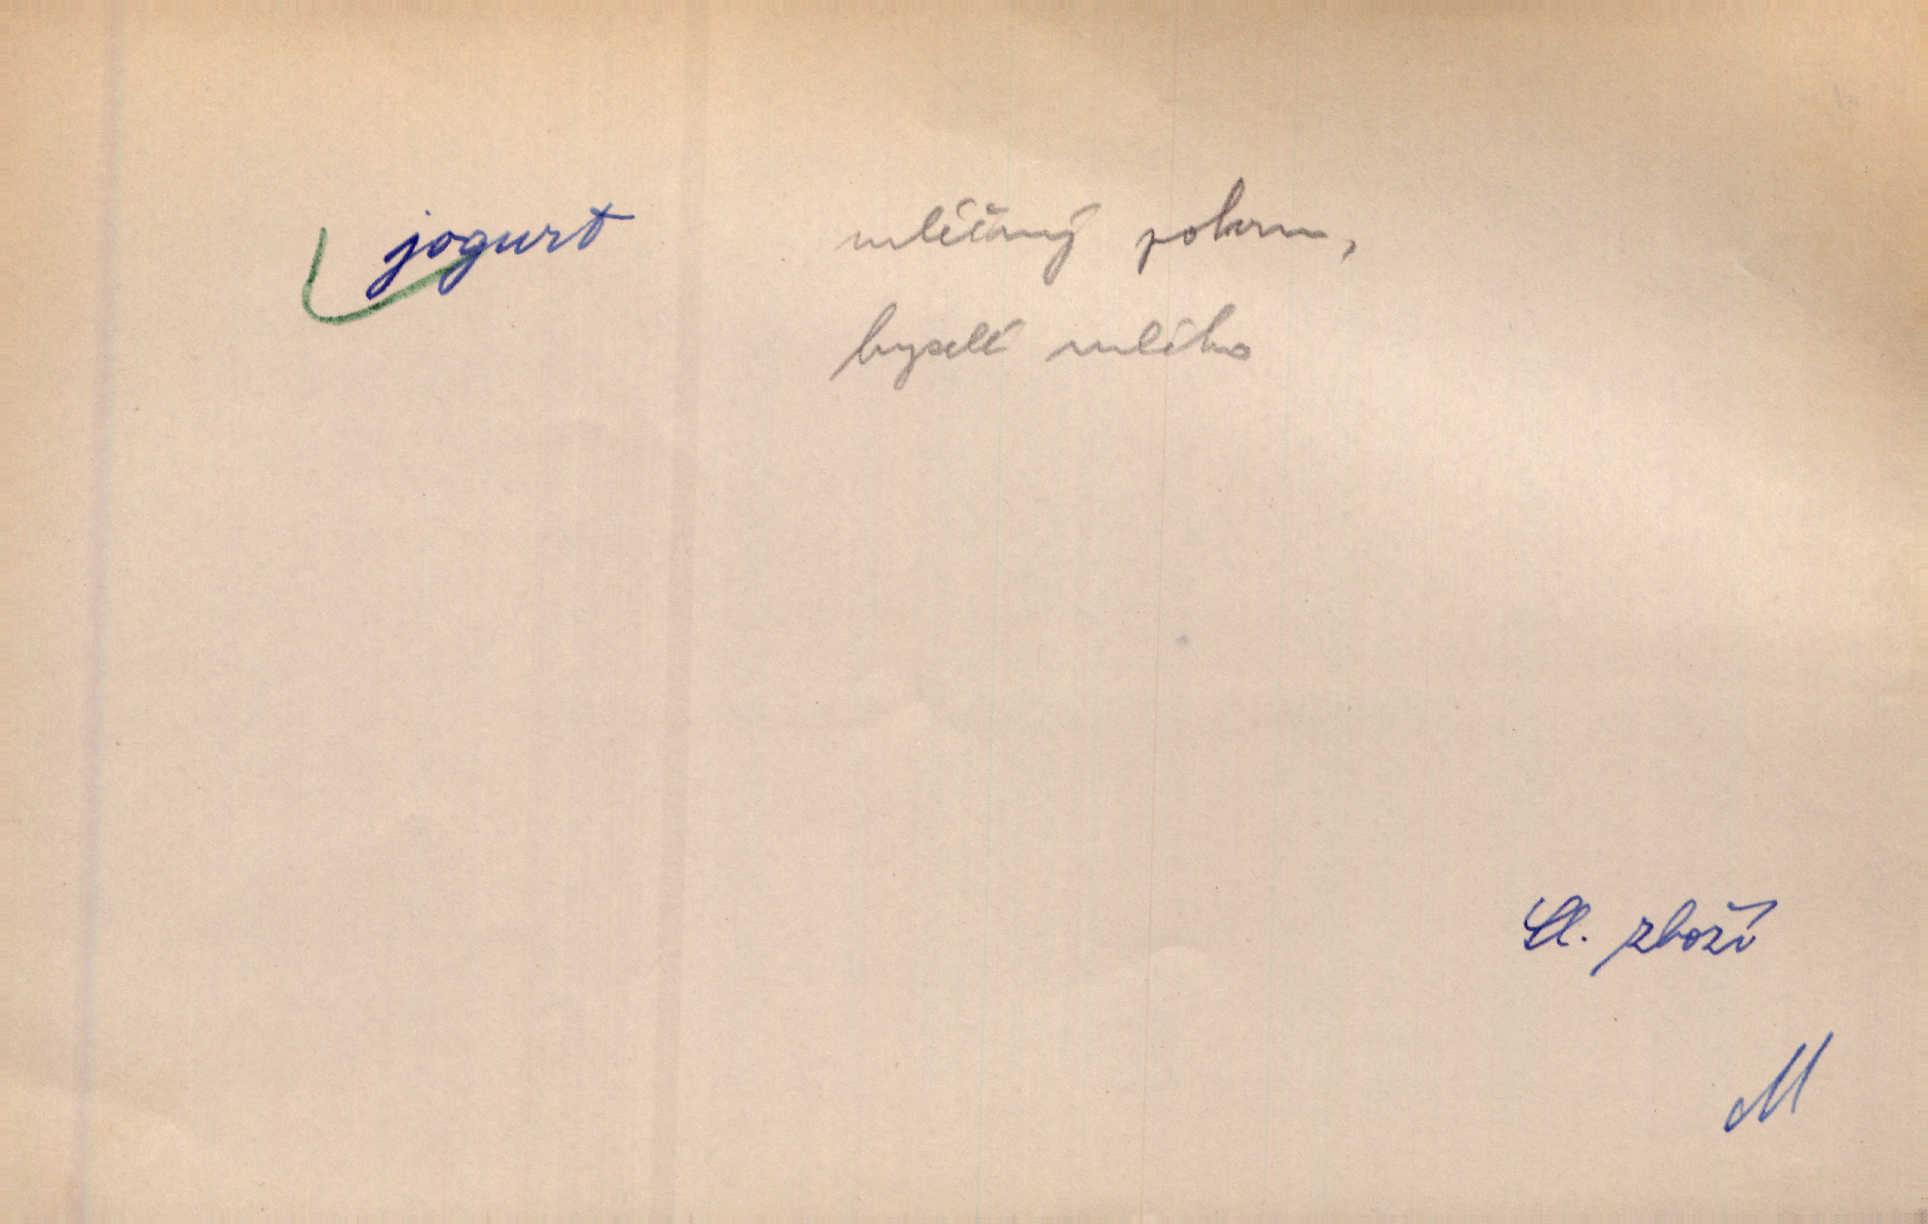 jogurt mléčný pokrm,
kyselé mléko
Sl. zboží
M